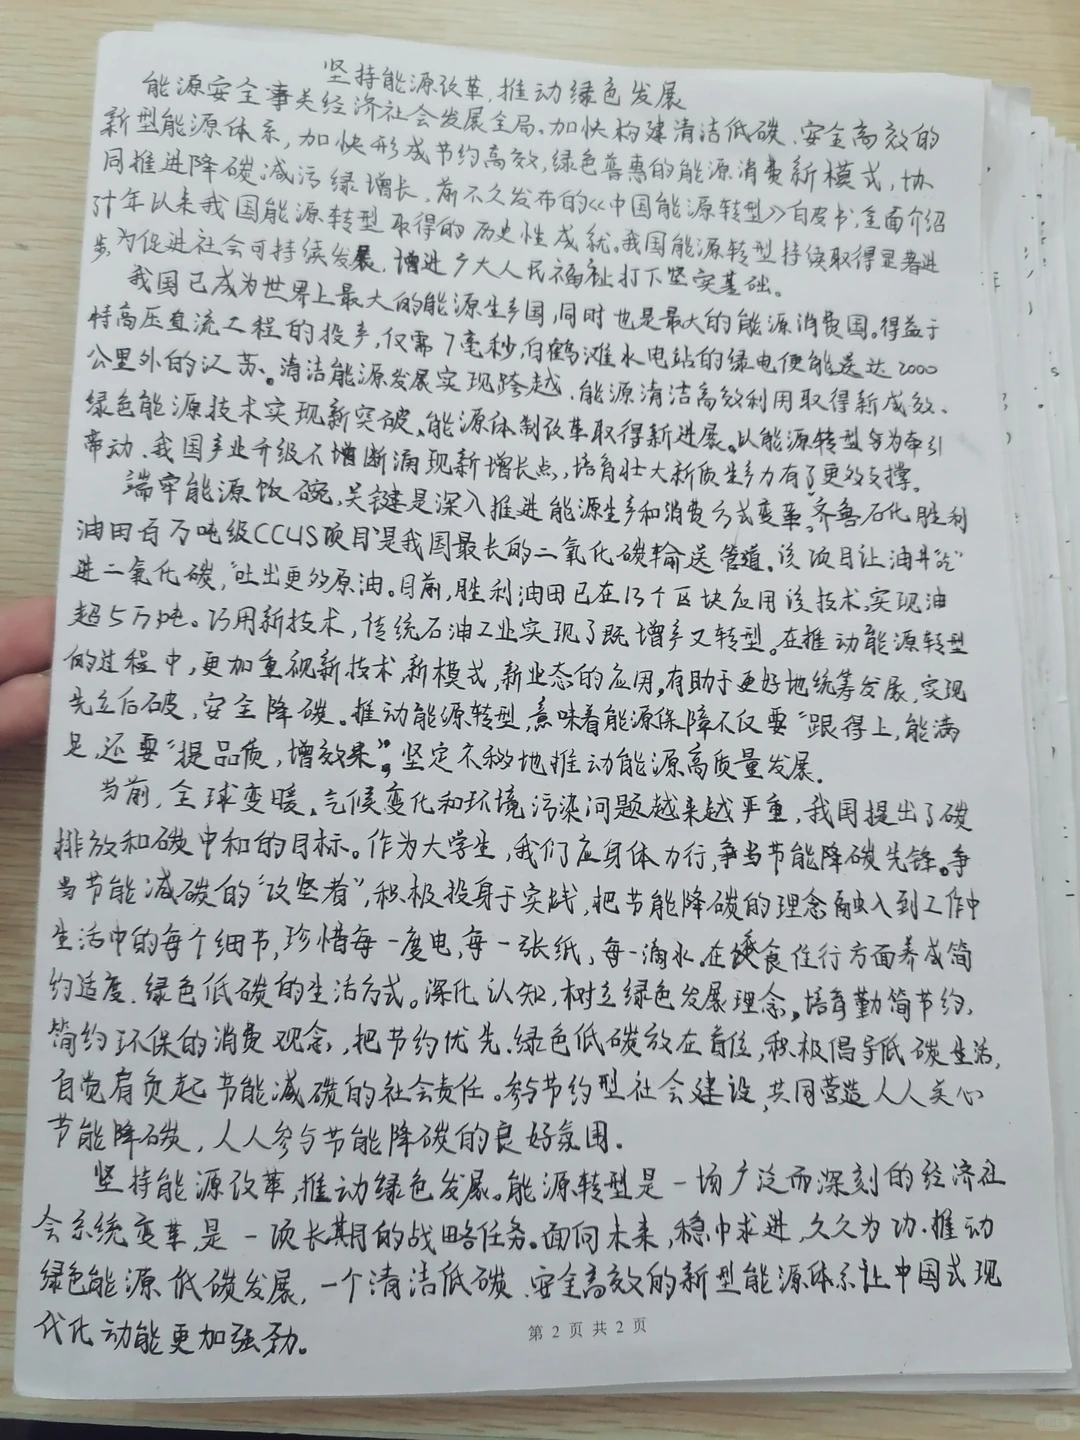 坚持能源改革,推动绿色发展
能源安全事关经济社会发展全局。加快构建清洁低碳、安全高效的
新型能源体系,加快形成节约高效,绿色普惠的能源消费新模式,协
同推进降碳减污绿增长。前不久发布的《中国能源转型》白皮书,全面介绍
年以来我国能源转型取得的历史性成就。我国能源转型持续取得显著进
步,为促进社会可持续发展,增进广大人民福祉打下坚实基础。
我国已成为世界上最大的能源生产国,同时也是最大的能源消费国。得益于
特高压直流工程的投产,仅需7毫秒,白鹤滩水电站的绿电便能送达2000
公里外的江苏。清洁能源发展实现跨越,能源清洁高效利用取得新成效、
绿色能源技术实现新突破、能源体制改革取得新进展。以能源转型为牵引
带动、我国产业升级不断涌现新增长点,培育壮大新质生产力有了更多支撑。
端牢能源饭碗,关键是深入推进能源生产和消费方式变革。"齐鲁石化胜利
油田百万吨级CCUS项目"是我国最长的二氧化碳输送管道。该项目让油井"吃"
进二氧化碳,"吐出更多原油。目前,胜利油田已在15个区块应用该技术,实现油
超5万吨。巧用新技术,传统石油工业实现了既增产又转型。在推动能源转型
的过程中,更加重视新技术,新模式,新业态的应用,有助于更好地统筹发展,实现
先立后破,安全降碳。推动能源转型,意味着能源保障不仅要"跟得上,能满
足,还要"提品质,增效果",坚定不移地推动能源高质量发展。
当前,全球变暖、气候变化和环境污染问题越来越严重,我国提出了碳
排放和碳中和的目标。作为大学生,我们应身体力行,争当节能降碳先锋。争
当节能减碳的"攻坚者",积极投身于实践,把节能降碳的理念融入到工作中
生活中的每个细节,珍惜每一度电,每一张纸,每一滴水。在食住行方面养成简
约适度、绿色低碳的生活方式。深化认知,树立绿色发展理念,培育勤简节约、
简约环保的消费观念,把节约优先、绿色低碳放在首位,积极倡导低碳生活,
自觉肩负起节能减碳的社会责任。参与节约型社会建设,共同营造人人关心
节能降碳,人人参与节能降碳的良好氛围。
坚持能源改革,推动绿色发展。能源转型是一场广泛而深刻的经济社
会系统变革,是一项长期的战略任务。面向未来,稳中求进,久久为功.推动
绿色能源低碳发展,一个清洁低碳、安全高效的新型能源体系让中国式现
代化动能更加强劲。
第 2 页 共 2 页